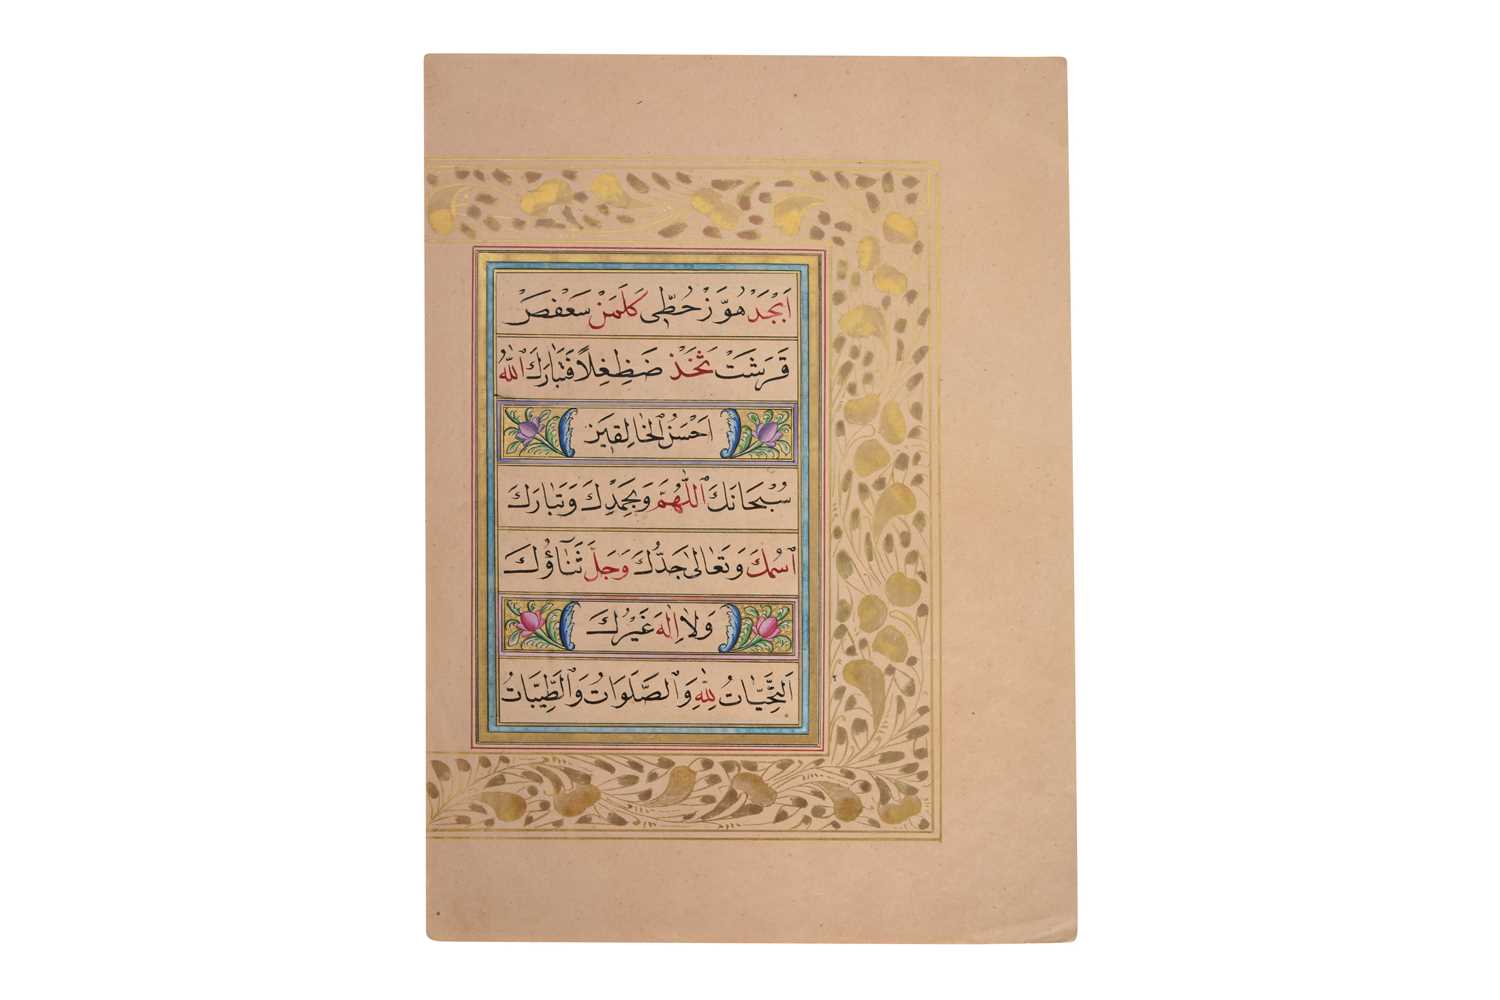 اَبْجَدْ هُوَّزْ حُطّٖى كَلَمَنْ سَعْفَصْ
قَرَشَتْ ثَخَذْ ضَظِغِلاً فَتَبَارَكَ اللّٰهُ
اَحْسَنُ الْخَالِقٖينَ
سُبْحَانَكَ اللّٰهُمَّ وَبِحَمْدِكَ وَتَبَارَكَ
اسْمُكَ وَتَعَالٰى جَدُّكَ وَجَلَّ ثَنَاؤُكَ
وَلَا اِلٰهَ غَيْرُكَ
اَلتَّحِيَّاتُ لِلّٰهِ وَالصَّلَوَاتُ وَالطَّيِّبَاتُ